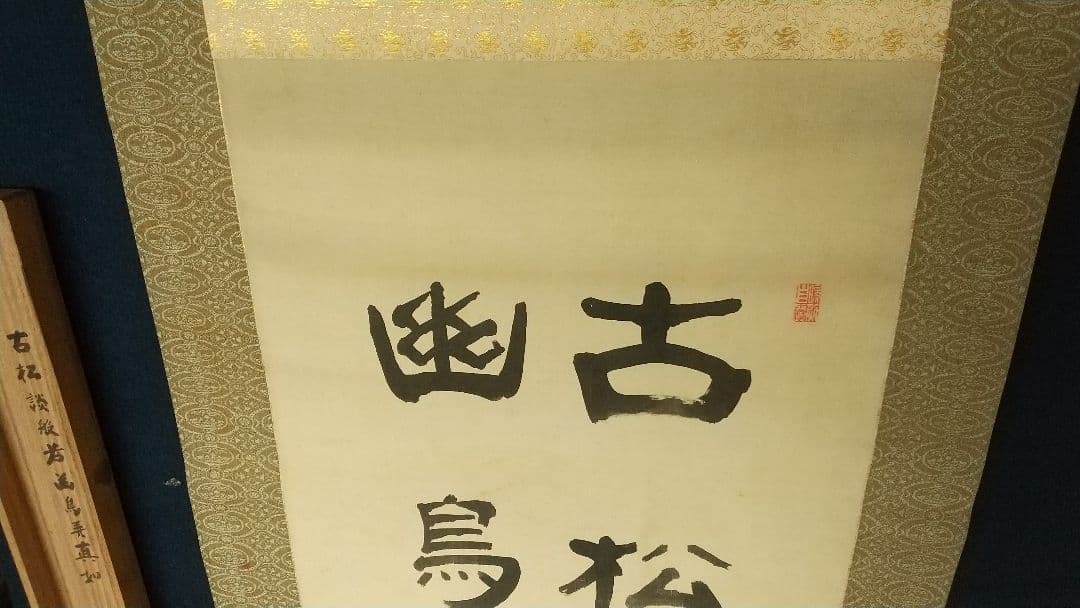 古松
幽鳥
古松談般若幽鳥弄真如